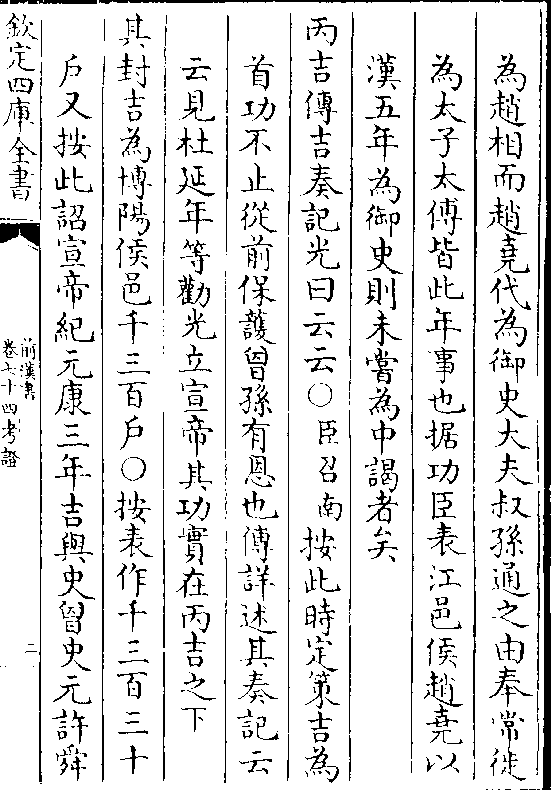 為趙相而趙堯代為御史大夫叔孫通之由奉常徙
為太子太傅皆此年事也据功臣表江邑侯趙堯以
漢五年為御史則未嘗為中謁者矣
丙吉傳吉奏記光曰云云○臣召南按此時定策吉為
首功不止從前保護曾孫有恩也傳詳述其奏記云
云見杜延年等勸光立宣帝其功實在丙吉之下
其封吉為博陽侯邑千三百戶○按表作千三百三十
戶又按此詔宣帝紀元康三年吉與史曾史元許舜
欽定四庫全書
前漢書
卷七十四考證
二